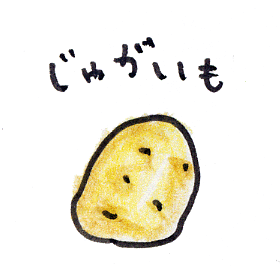 じゃがいも